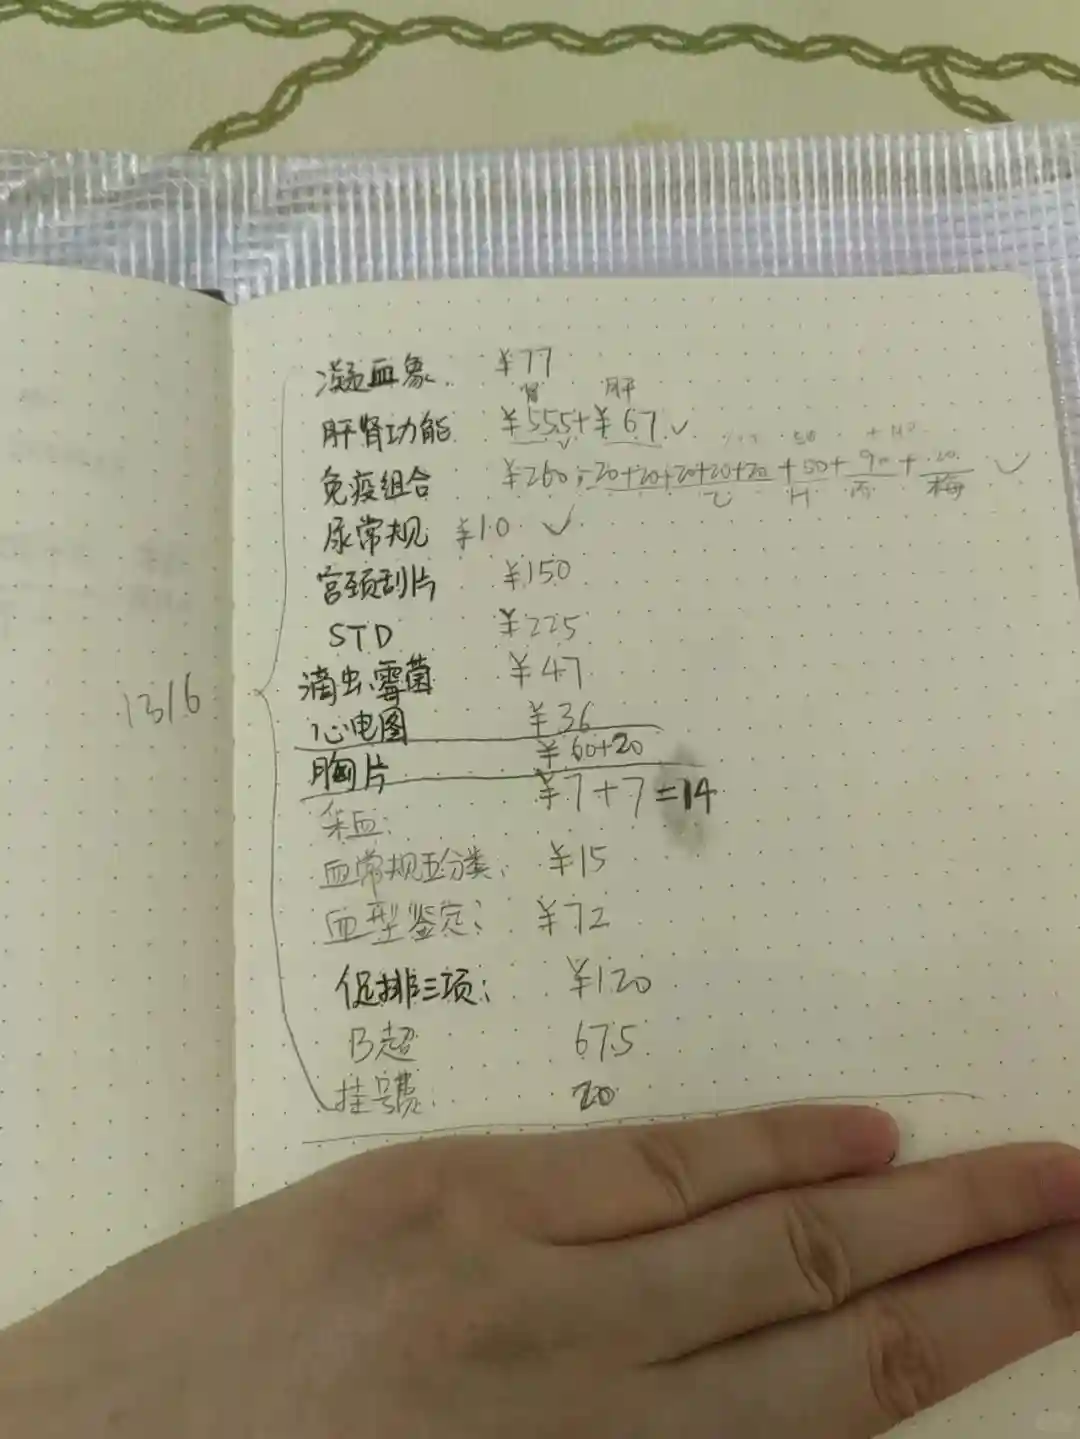 凝血象 ¥77
肾 肝
肝肾功能 ¥55.5+¥67 ✓
50
免疫组合 ¥260:20+20+20+20+20+50+90+20 ✓
乙 H 丙 梅
尿常规 ¥10 ✓
宫颈刮片 ¥150
STD ¥225
滴虫.霉菌 ¥47
1316
心电图 ¥36
胸片 ¥60+20
采血: ¥7+7=14
血常规五分类: ¥15
血型鉴定: ¥72
促排三项: ¥120
B超 67.5
挂号费 20